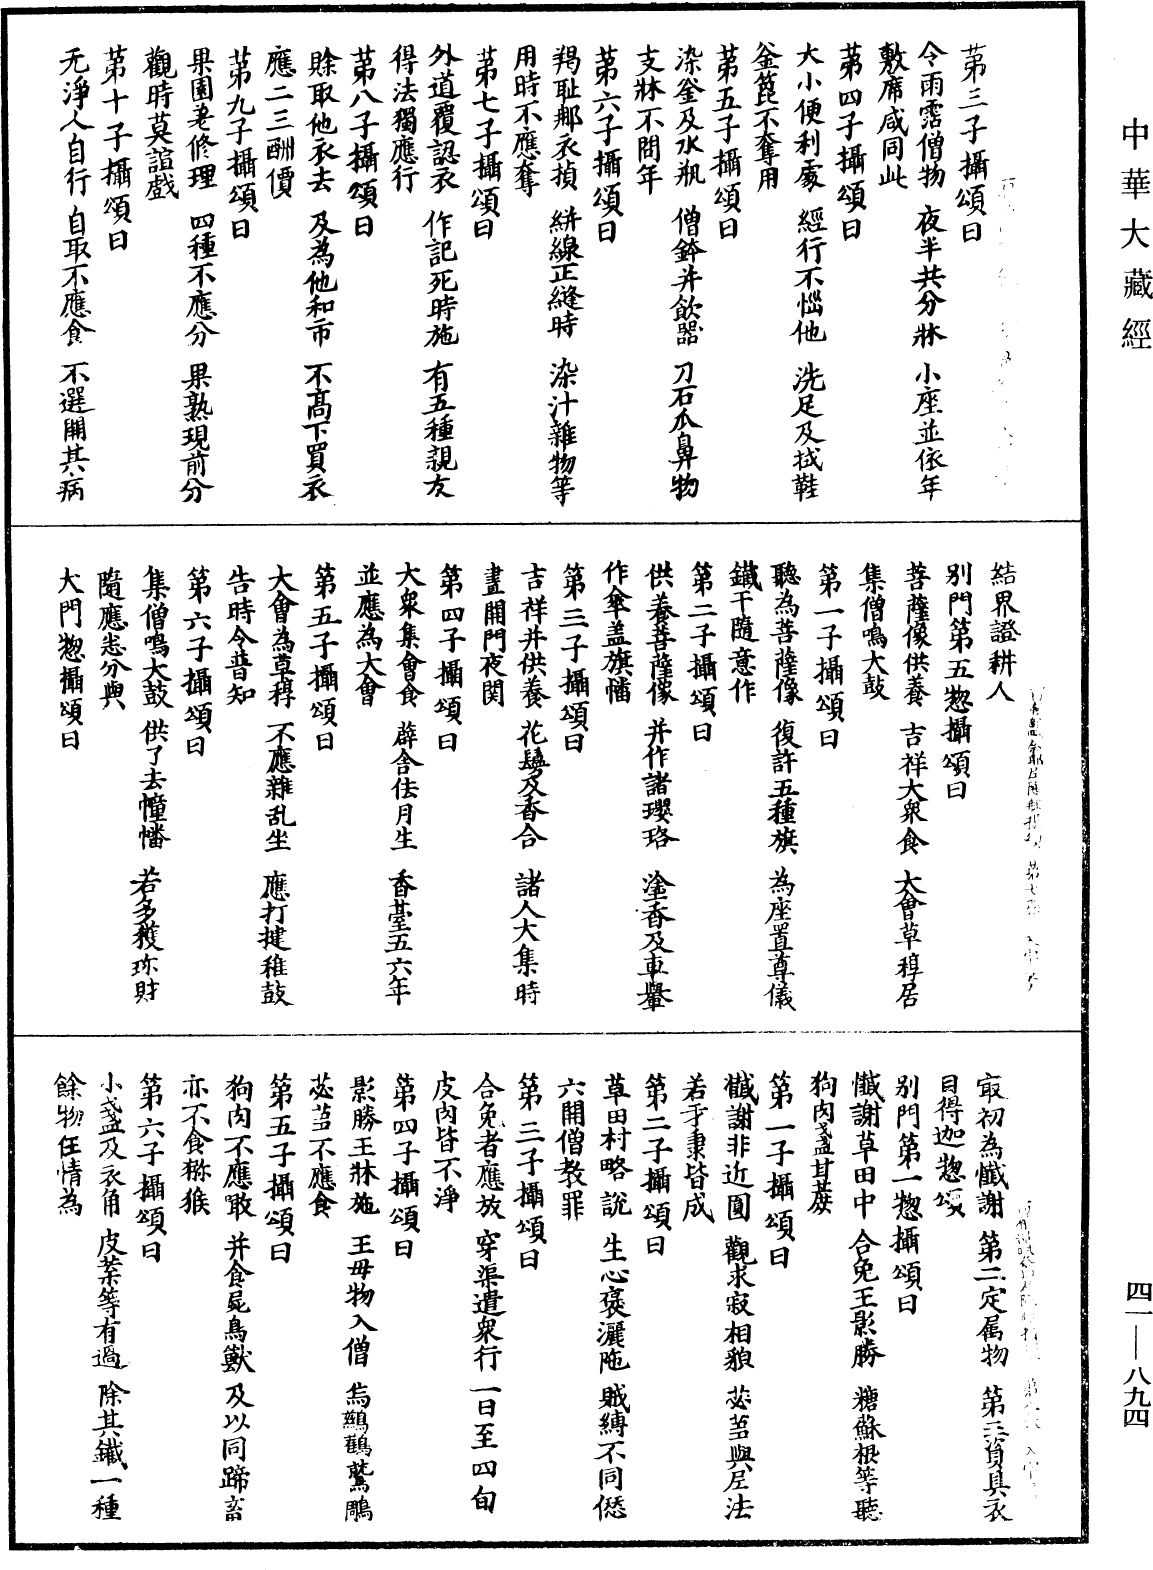 中華大藏經
第三子攝頌曰
令雨霑僧物 夜半共分牀 小座並依年
敷席咸同此
第四子攝頌曰
大小便利處 經行不惱他 洗足及拭鞋
釜箆不奪用
第五子攝頌曰
染釜及水瓶 僧鉢并飲器 刀石爪鼻物
支牀不問年
第六子攝頌曰
羯耻那衣揁 絣線正縫時 染汁雜物等
用時不應奪
第七子攝頌曰
外道覆認衣 作記死時施 有五種親友
得法獨應行
第八子攝頌曰
賒取他衣去 及為他和市 不高下買衣
應二三酬價
第九子攝頌曰
果園老修理 四種不應分 果熟現前分
觀時莫諠戲
第十子攝頌曰
无淨人自行 自取不應食 不選開其病
結界證耕人
別門第五惣攝頌曰
菩薩像供養 吉祥大衆食 大會草稕居
集僧鳴大鼓
第一子攝頌曰
聽為菩薩像 復許五種旗 為座置尊儀
鐵干隨意作
第二子攝頌曰
供養菩薩像 并作諸瓔珞 塗香及車轝
作傘盖旗幡
第三子攝頌曰
吉祥并供養 花鬘及香合 諸人大集時
晝開門夜閉
第四子攝頌曰
大衆集會食 薜舍佉月生 香臺五六年
並應為大會
第五子攝頌曰
大會為草稕 不應雜乱坐 應打揵稚鼓
告時令普知
第六子攝頌曰
集僧鳴大鼓 供了去幢幡 若多獲珎財
隨應悉分與
大門惣攝頌曰
㝡初為懺謝 第二定属物 第三資具衣
目得迦惣頌
別門第一惣攝頌曰
懺謝草田中 合免王影勝 糖酥根等聽
狗肉盞甘蔗
第一子攝頌曰
懺謝非近圓 觀求寂相貌 苾芻與尼法
若乖秉皆成
第二子攝頌曰
草田村略說 生心褒灑陁 賊縛不同愆
六開僧教罪
第三子攝頌曰
合免者應放 穿渠遣衆行 一日至四旬
皮肉皆不淨
第四子攝頌曰
影勝王牀施 王毋物入僧 烏鷀鶴鷲鵰
苾芻不應食
第五子攝頌曰
狗肉不應噉 并食屍鳥獸 及以同蹄畜
亦不食獼猴
第六子攝頌曰
小盞及衣角 皮葉等有過 除其鐵一種
餘物任情為
四一—八九四